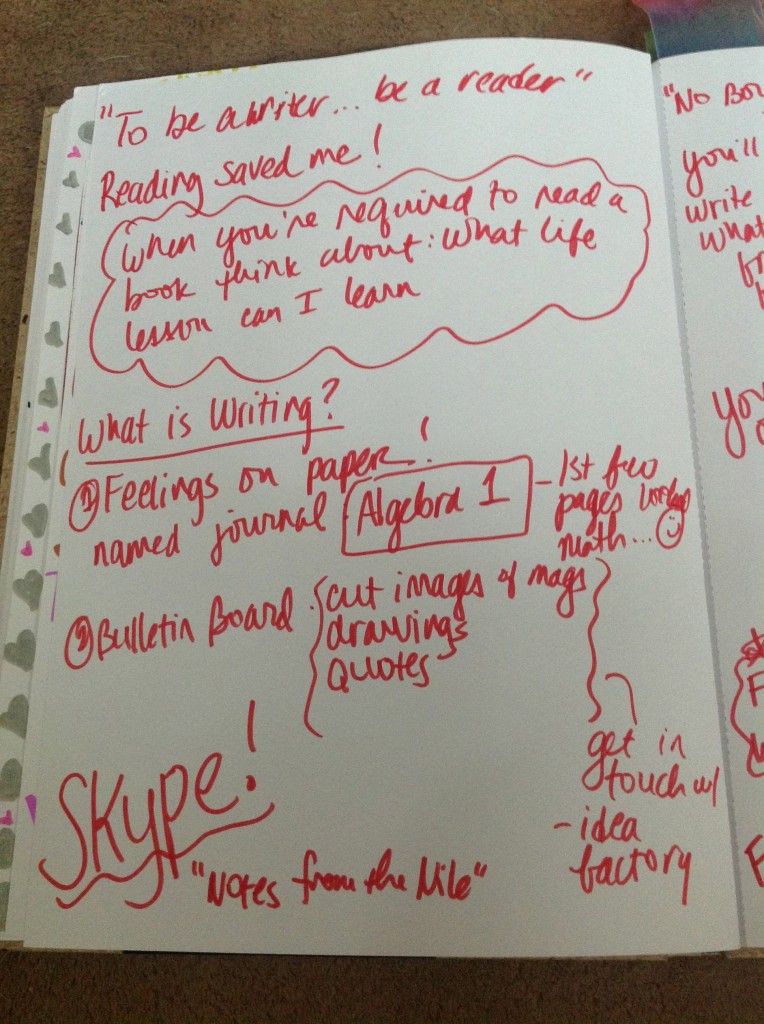 "To be a writer... be a reader"
Reading saved me!
When you're required to read a
book think about: What life
lesson can I learn
What is Writing?
① Feelings on paper!
named journal Algebra 1 - 1st few
pages
math... ☺
② Bulletin Board cut images of mags
drawings
quotes
get in
touch w/
- idea
factory
SKype!
"Notes from the Nile"
"No
you'll
write
what
You